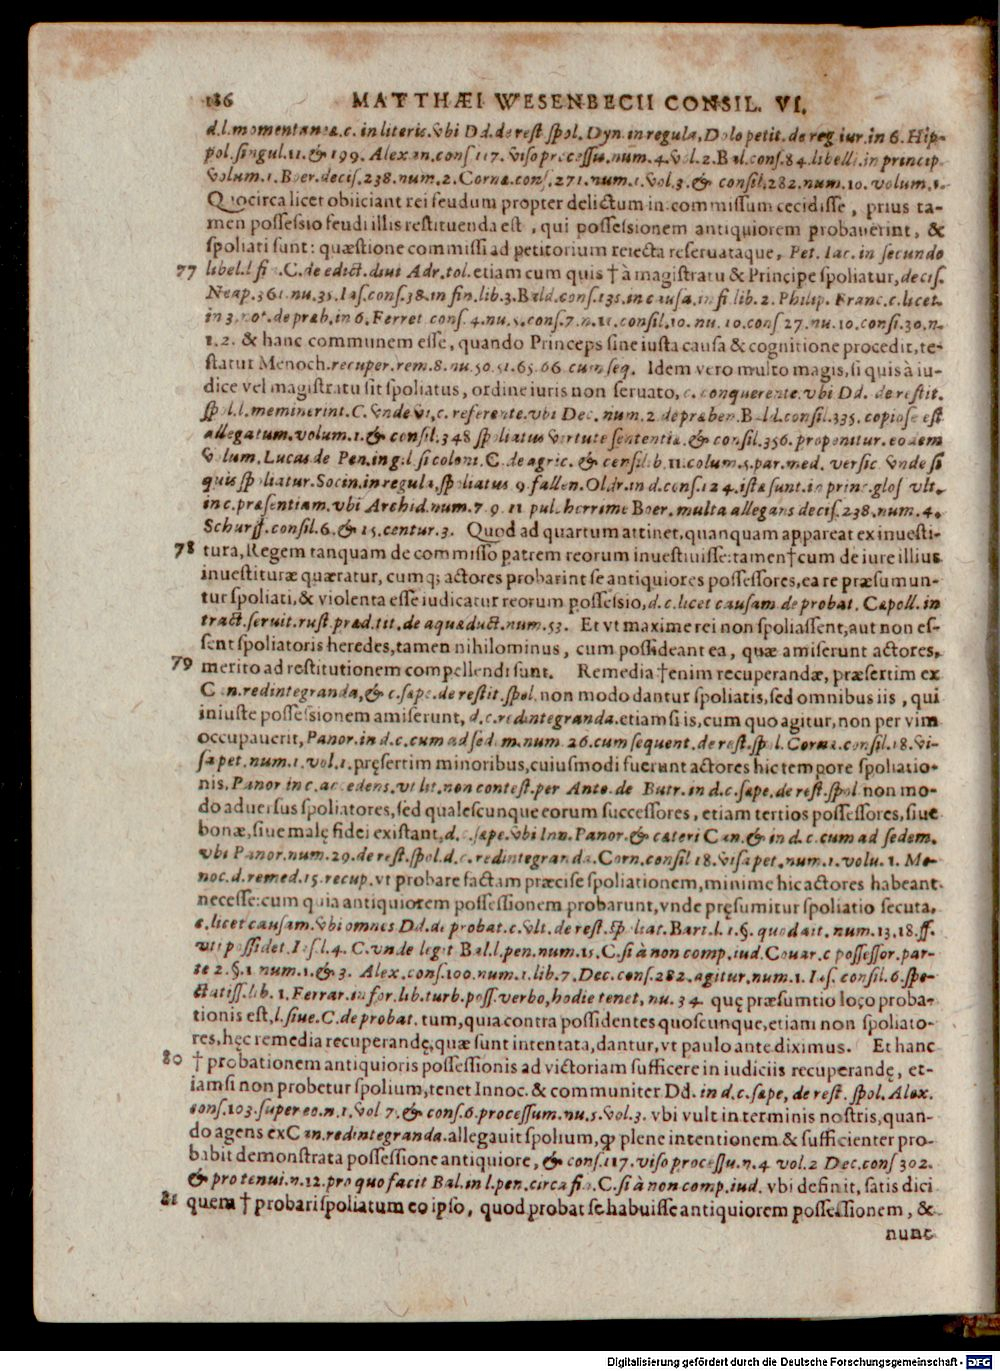 186 MATTHÆI WESENBECII CONSIL. VI.
d.l.momentaneæ.c. in literis.vbi Dd.de rest.spol. Dyn.in regula, Dolo petit. de reg iur.in 6. Hip-
pol.singul.11.& 199. Alexan.cons 117. viso processu.num.4.Vol.2.Bal.cons.84.libelli.in princip
volum.1.Boer.decis.238.num.2.Corne.cons.271.num.1.Vol.3.& consil.282.num.10. volum.1.
Quocirca licet obiiciant rei feudum propter delictum in commissum cecidisse, prius ta-
men possessio feudi illis restituenda est, qui possessionem antiquiorem probauerint, &
spoliati sunt: quæstione commissi ad petitorium reiecta reseruataque, Pet. Iac. in secundo
77 libel.l fi .C.de edict.diui Adr.tol.etiam cum quis † à magistratu & Principe spoliatur,decis.
Neap.361.nu.35.Ias.cons.38.in fin.lib.3.Bald.cons.135.in causa.in fi.lib.2. Philip. Franc.c.licet.
in 3.not.de præb.in 6. Ferret cons.4.nu.5.cons.7.n.11.consil.10. nu.10.cons 27.nu.10.consi.30.n.
1.2. & hanc communem esse, quando Princeps sine iusta causa & cognitione procedit,te-
statur Menoch.recuper.rem.8.nu.50.51.65.66 cum seq. Idem vero multo magis,si quis à iu-
dice vel magistratu sit spoliatus, ordine iuris non seruato,c.conquerente.vbi Dd. de restit.
spol.l.meminerint.C.vnde vi,c. referente.vbi Dec.num.2.de præben.Bald.consil.335.copiose est
allegatum.volum.1.& consil.348 spoliatus virtute sententiæ.& consil.356.proponitur.eodem
volum.Lucas de Pen.in gl.l si coloni.C.de agric. & censi.lib.11.colum.5.par.med. versic vnde si
quis spoliatur.Socin.in regula,spoliatus 9.fallen.Oldr.in d.cons.124.ista sunt.in princ.glos vlt.
in c.præsentiam.vbi Archid.num.7.9.11 pulcherrime Boer.multa allegans decis.238.num.4.
Schurff.consil.6.& 15.centur.3. Quod ad quartum attinet,quanquam appareat ex inuesti-
78 tura,Regem tanquam de commisso patrem reorum inuestiuisse:tamen†cum de iure illius
inuestituræ quæratur, cumq; actores probarint se antiquiores possessores,ea re præsumun-
tur spoliati,& violenta esse iudicatur reorum possessio,d.c.licet causam.de probat. Cæpoll.in
tract.seruit.rust.præd.tit.de aquæduct.num.53. Et vt maxime rei non spoliassent,aut non es-
sent spoliatoris heredes,tamen nihilominus, cum possideant ea, quæ amiserunt actores,
79 merito ad restitutionem compellendi sunt. Remedia †enim recuperandæ, præsertim ex
Can.redintegranda,& c.sæpe.de restit.spol. non modo dantur spoliatis,sed omnibus iis, qui
iniuste possessionem amiserunt, d.c.redintegranda.etiamsi is,cum quo agitur,non per vim
occupauerit,Panor.in d.c.cum ad sedem.num.26.cum sequent.de rest.spol. Corne.consil.18.Vi-
sa pet.num.1.vol.1.pręsertim minoribus,cuiusmodi fuerunt actores hic tempore spoliatio-
nis,Panor in c.accedens,vt lit.non contest.per Anto.de Butr.in d.c.sæpe.de rest.spol non mo-
do aduersus spoliatores,sed qualescunque eorum successores, etiam tertios possessores,siue
bonæ,siue malę fidei existant,d.c.sæpe.vbi Inn.Panor.& cæteri Can.& in d.c.cum ad sedem.
vbi Panor.num.29.de rest.spol.d.c.redintegranda.Corn.consil 18.visa pet.num.1.volu.1. Me-
noc.d.remed.15.recup.vt probare factam præcise spoliationem,minime hic actores habeant
necesse:cum quia antiquiorem possessionem probarunt,vnde pręsumitur spoliatio secuta,
c.licet causam.vbi omnes Dd.de probat.c.vlt.de rest.spoliat.Bart.l.1.§.quod ait.num.13.18.ff.
vti possidet.Ias.l.4.C.vnde legit Bal.l.pen.num.15.C.si à non comp.iud.Couar.c possessor.par-
te 2.§.1 num.1.& 3. Alex.cons.100.num.1.lib.7.Dec.cons.282.agitur.num.1.Ias. consil.6.spe-
ctatiss.lib.1.Ferrar.in for.lib.turb.poss.verbo,hodie tenet, nu.34. quę præsumtio loco proba-
tionis est,l.siue.C.de probat.tum,quia contra possidentes quoscunque,etiam non spoliato-
res,hęc remedia recuperandę,quæ sunt intentata,dantur,vt paulo ante diximus. Et hanc
80 † probationem antiquioris possessionis ad victoriam sufficere in iudiciis recuperandę, et-
iamsi non probetur spolium,tenet Innoc.& communiter Dd. in d.c.sæpe, de rest. spol. Alex.
cons.103.super eo.n.1.Vol 7.& cons.6.processum.nu.5.Vol.3. vbi vult in terminis nostris,quan-
do agens ex Can.redintegranda.allegauit spolium,ꝙ plene intentionem & sufficienter pro-
babit demonstrata possessione antiquiore, & cons.117.viso processu.n.4 vol.2 Dec.cons 302.
& pro tenui.n.12.pro quo facit Bal.in l.pen.circa fin.C.si à non comp.iud. vbi definit,satis dici
81 quem † probari spoliatum eo ipso, quod probat se habuisse antiquiorem possessionem, &
nunc
Digitalisierung gefördert durch die Deutsche Forschungsgemeinschaft - DFG